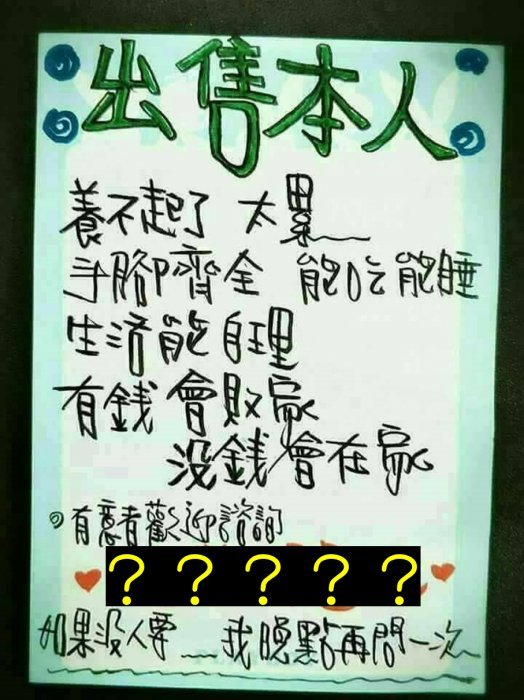 出售本人
養不起了 太累
手腳齊全 能吃能睡
生活能自理
有錢會敗家
沒錢會在家
有意者歡迎諮詢
？？？？？
如果沒人要 我晚點再問一次